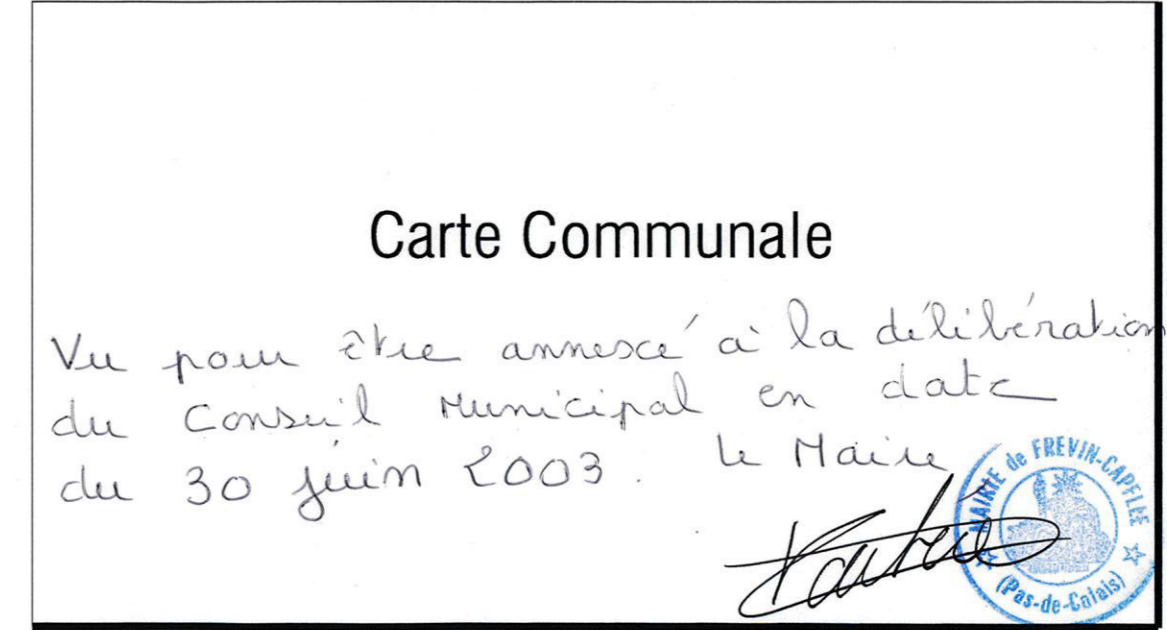 Carte Communale
Vu pour être annexé à la délibération
du Conseil Municipal en date
du 30 juin 2003. Le Maire
MAIRIE de FREVIN-CAPELLE
(Pas-de-Calais)